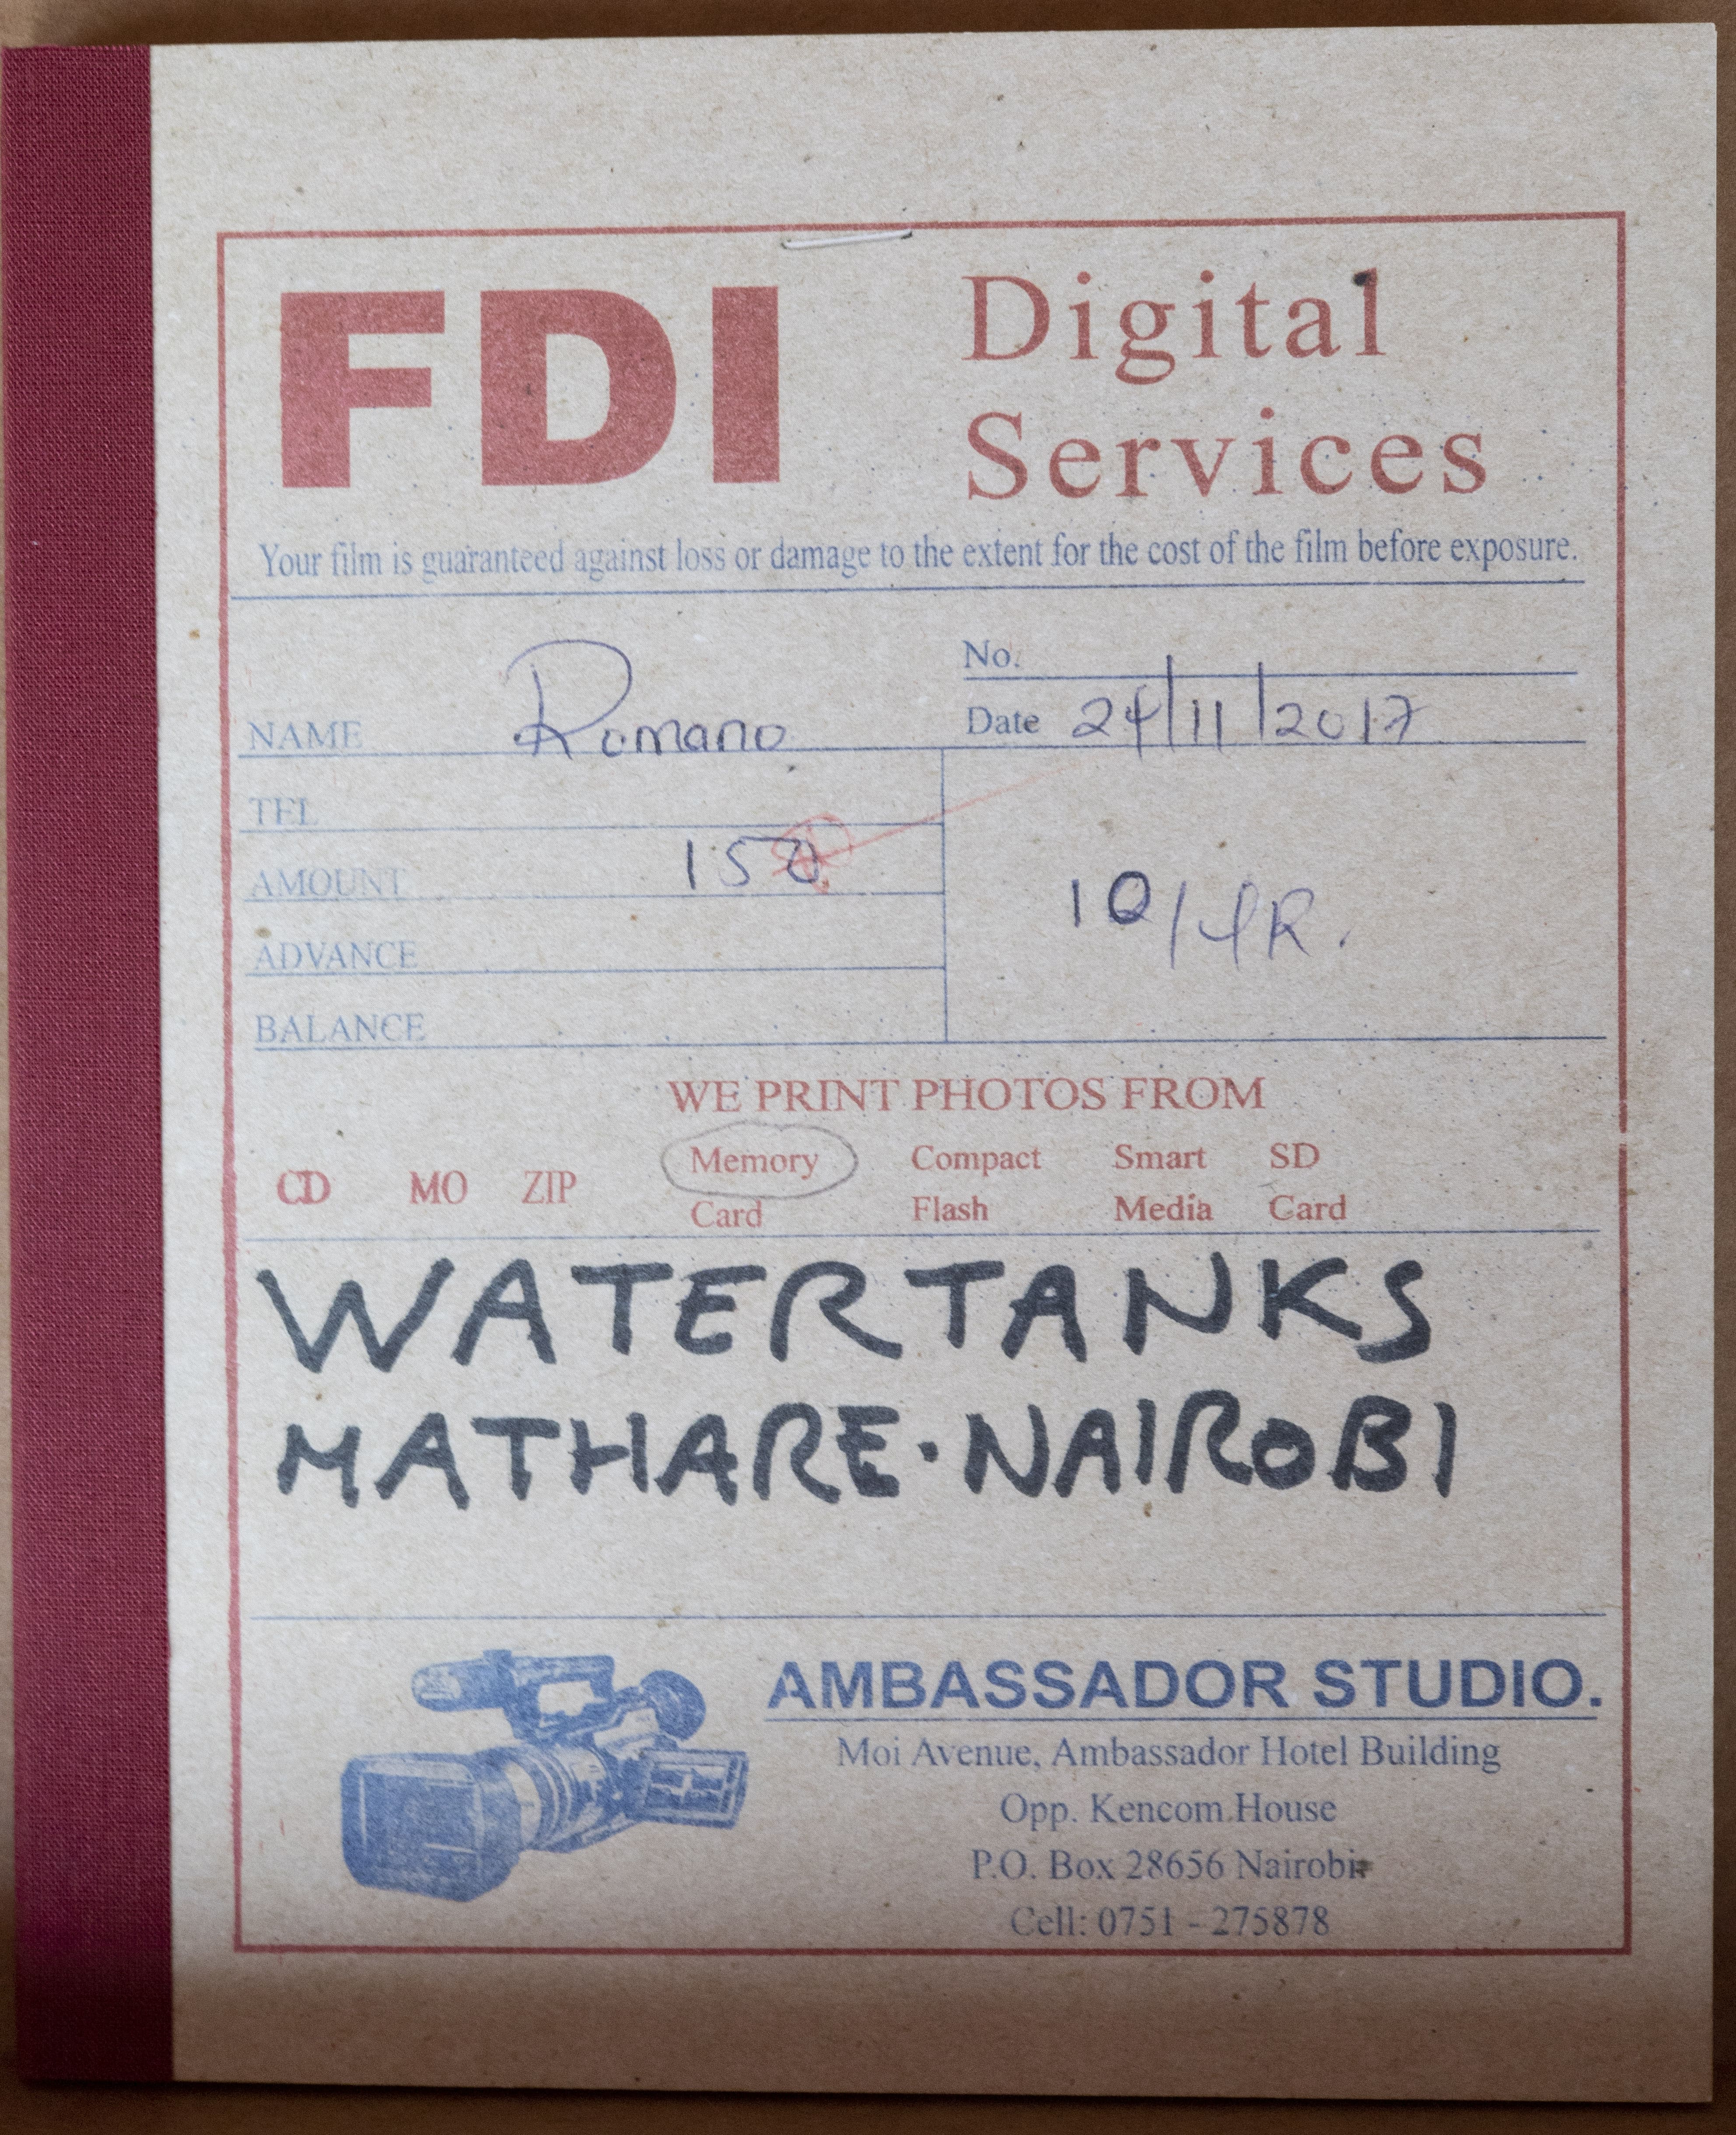 FDI Digital
Services
Your film is guaranteed against loss or damage to the extent for the cost of the film before exposure.
No.
NAME Romano Date 24/11/2017
TEL
AMOUNT 150
10/4R.
ADVANCE
BALANCE
WE PRINT PHOTOS FROM
CD MO ZIP Memory Card Compact Flash Smart Media SD Card
WATERTANKS
MATHARE·NAIROBI
AMBASSADOR STUDIO.
Moi Avenue, Ambassador Hotel Building
Opp. Kencom House
P.O. Box 28656 Nairobi
Cell: 0751 - 275878